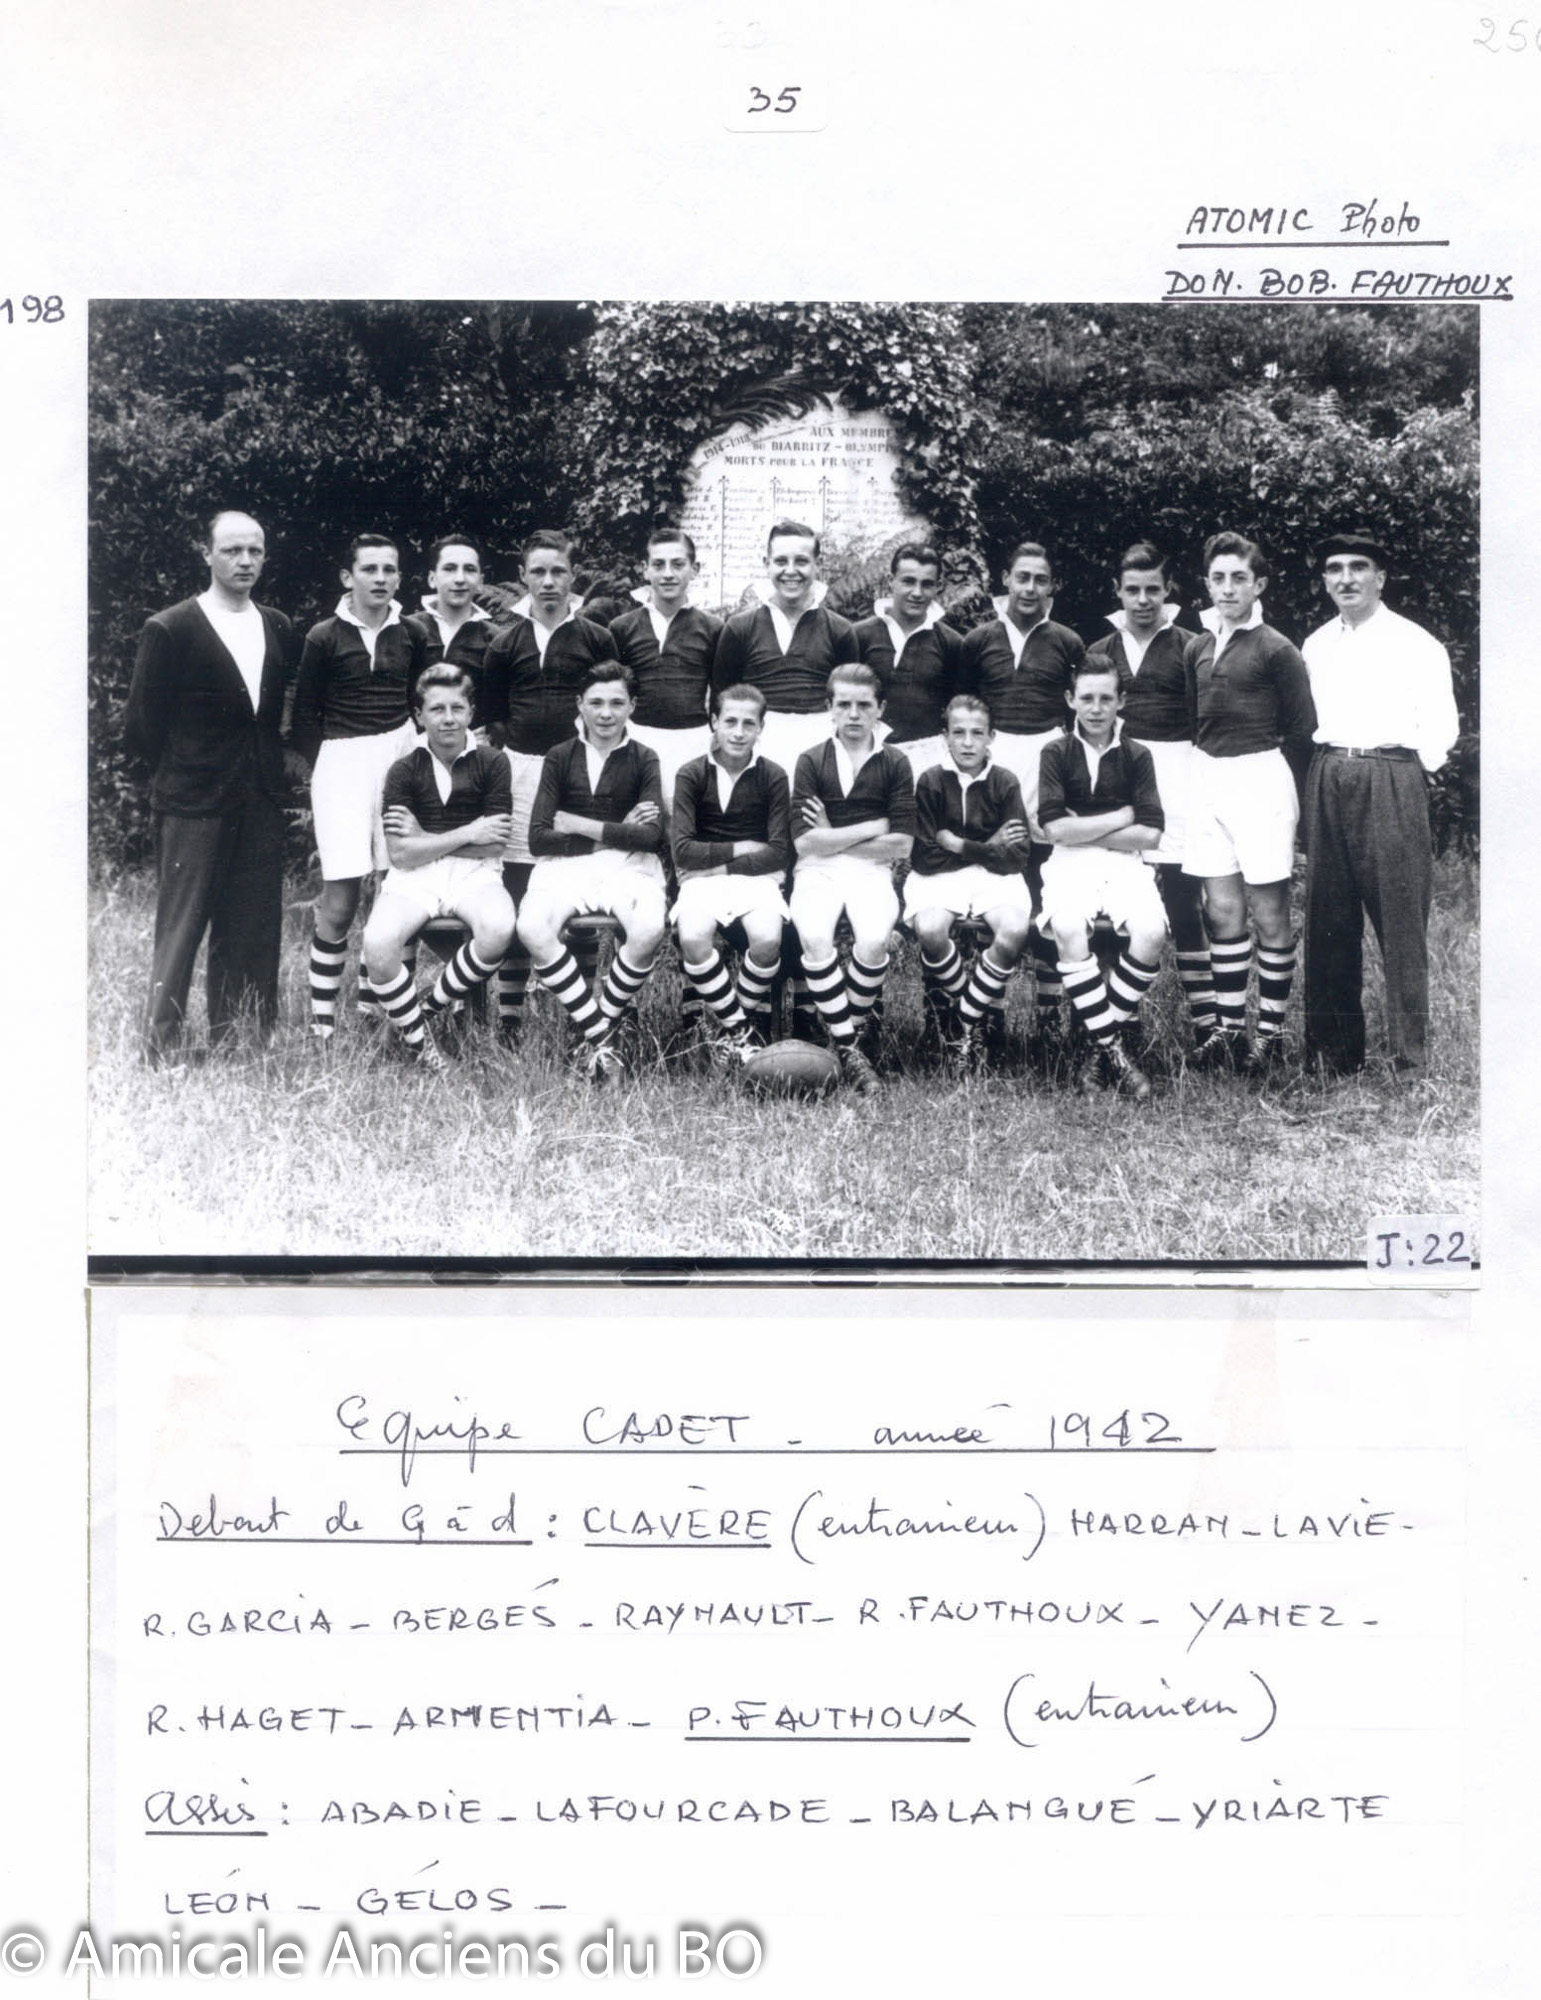 35
256
ATOMIC Photo
DON. BOB. FAUTHOUX
198
1914-1918
AUX MEMBRE
DU BIARRITZ - OLYMPI
MORTS POUR LA FRANCE
J:22
Equipe CADET - année 1942
Debout de G à d : CLAVÈRE (entraineur) HARRAN - LAVIE -
R. GARCIA - BERGÉS - RAYNAULT - R. FAUTHOUX - YANEZ -
R. HAGET - ARMENTIA - P. FAUTHOUX (entraineur)
Assis : ABADIE - LAFOURCADE - BALANGUÉ - YRIARTE
LEÓN - GÉLOS -
© Amicale Anciens du BO